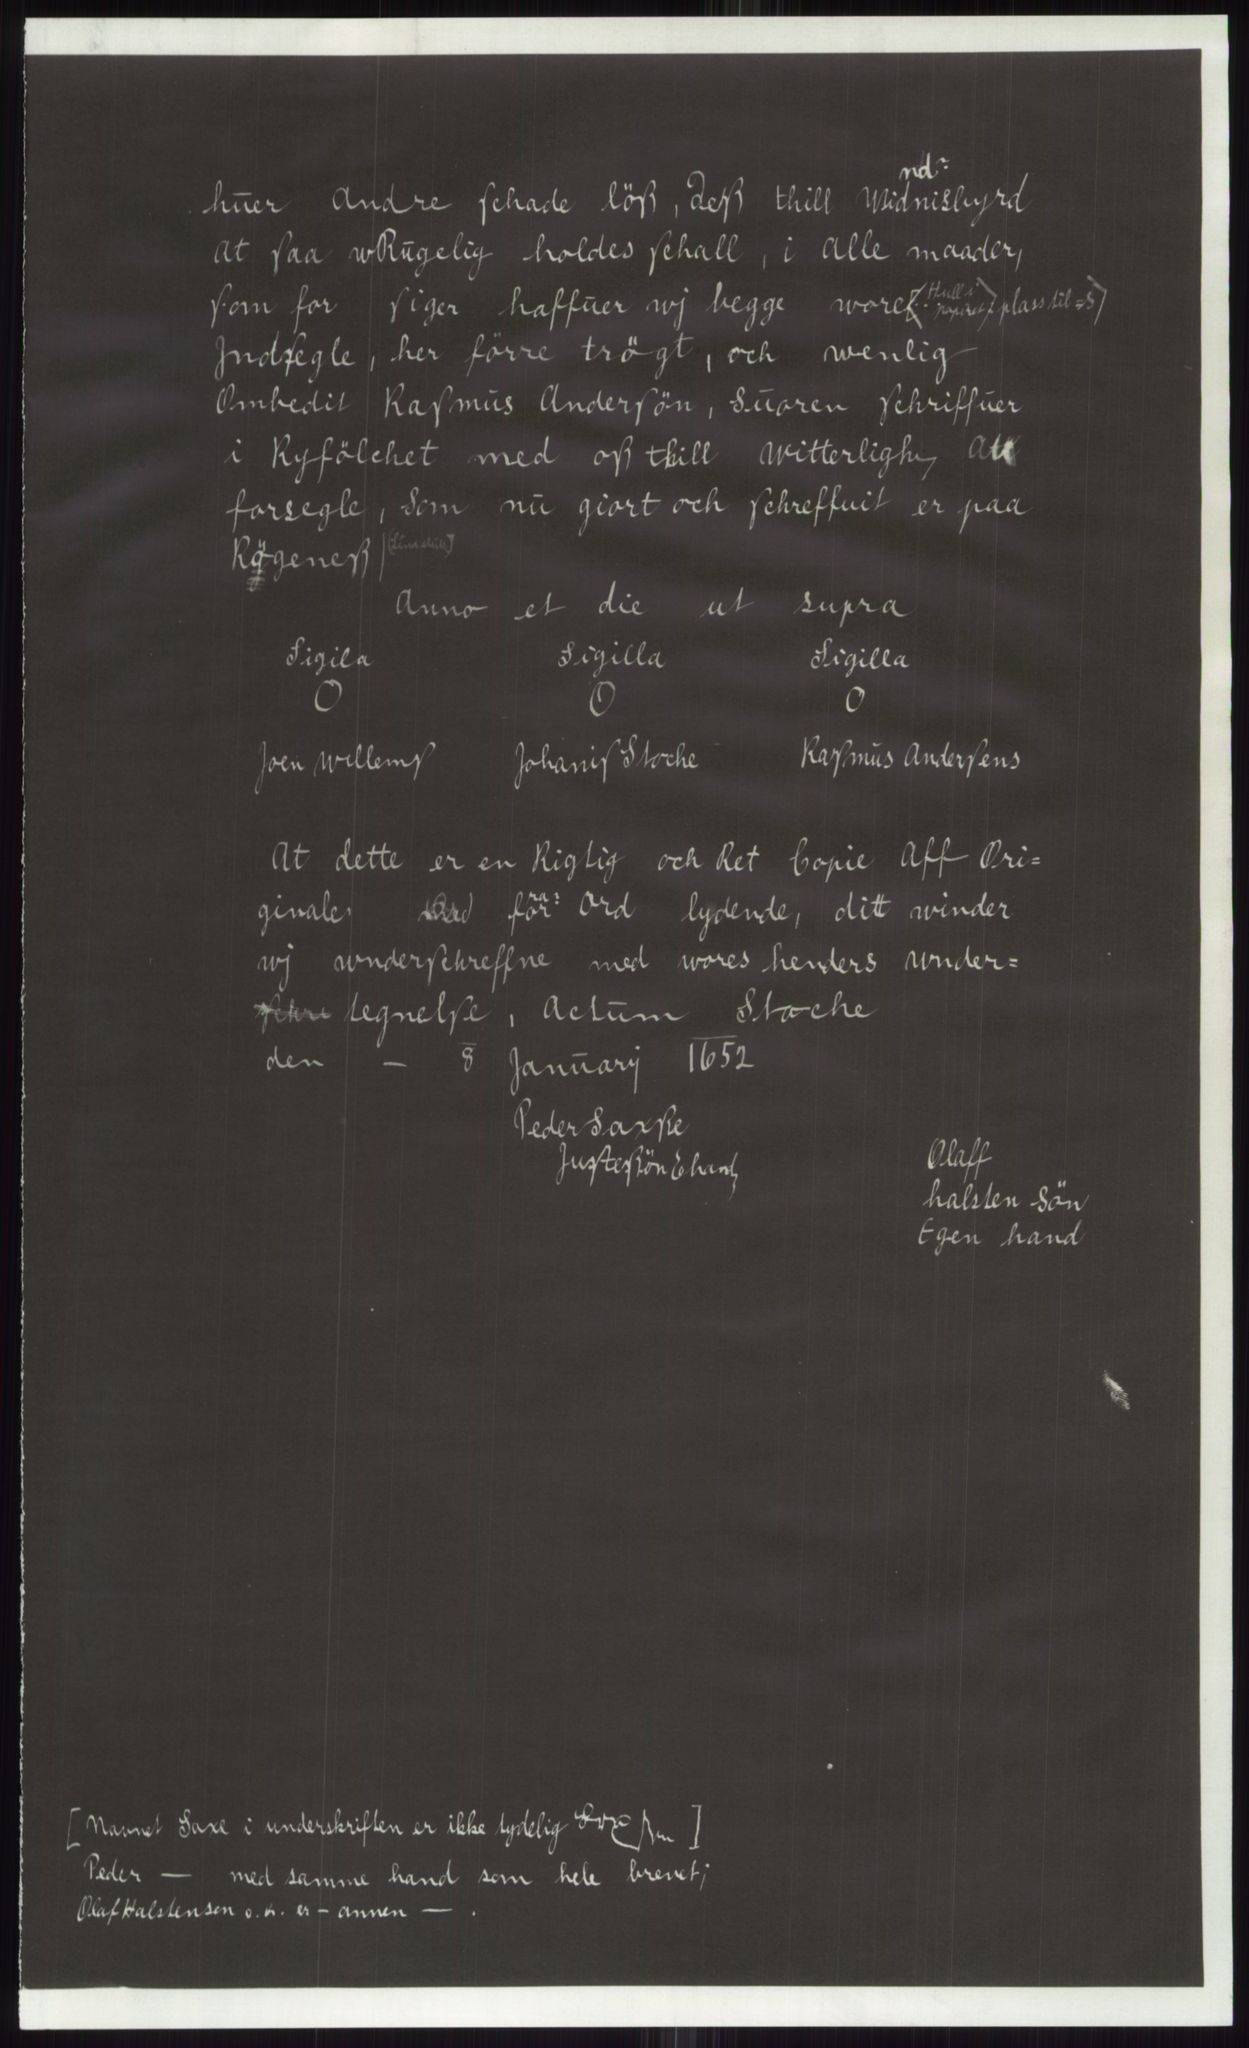 nd~
huer Andre schade löß, Deß thill Widnisbyrd
At saa wRugelig holdes schall, i Alle maader,
som for siger haffuer wj begge wore [Hull i papiret, plass til =s]
Jndsegle, her förre trögt, och wenlig
Ombedit Rasmus Andersön, Suoren schriffuer
i Ryfölchet med oß thill witterlighe, Att
forsegle, Som nu giort och schreffuit er paa
Rögeneß
Anno et die ut supra
Sigila Sigilla Sigilla
O O O
Joen Willemß Johaniß Stoche Rasmus Andersens
At dette er en Rigtig och Ret Copie Aff Ori=
ginale, for Ord lydende, ditt winder
wj wnderschreffne med wores henders wnder=
schre tegnelse, Actum Stoche
den – 8 January 1652
Peder Saxße
Justesön E hand
Olaff
halsten Sön
Egen hand
[Navnet Saxe i underskriften er ikke tydelig]
Peder — med samme hand som hele brevet;
Olaf Halstensen o.s. er – annen — .